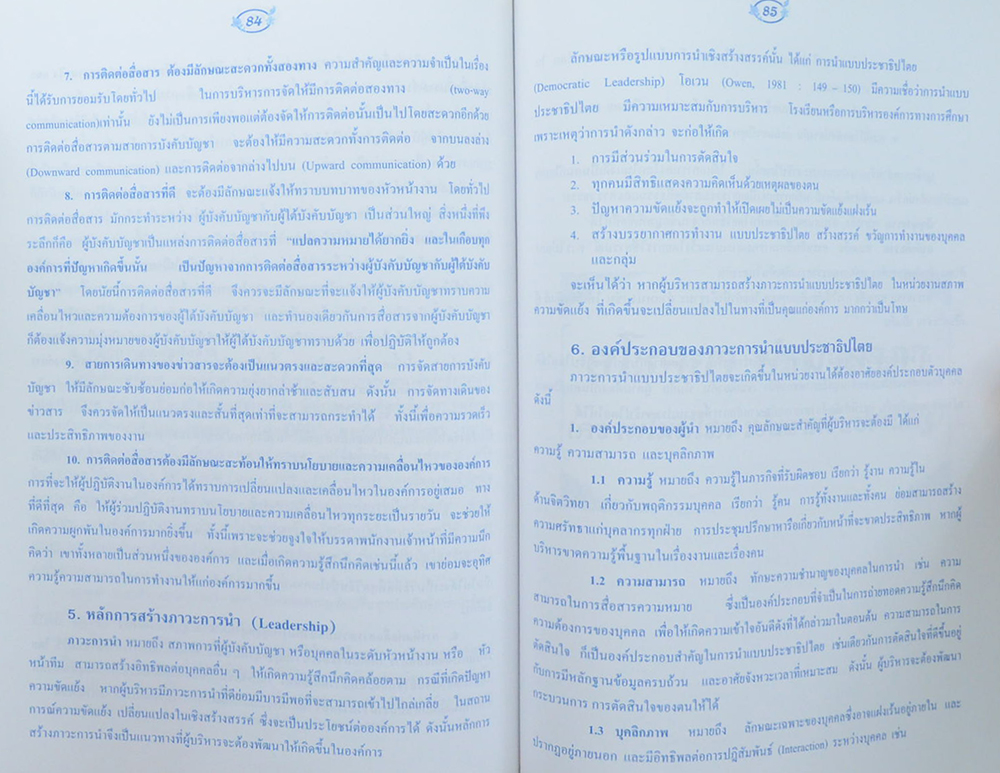 84
7. การติดต่อสื่อสาร ต้องมีลักษณะสะดวกทั้งสองทาง ความสำคัญและความจำเป็นในเรื่อง
นี้ได้รับการยอมรับโดยทั่วไป ในการบริหารการจัดให้มีการติดต่อสองทาง (two-way
communication)เท่านั้น ยังไม่เป็นการเพียงพอแต่ต้องจัดให้การติดต่อนั้นเป็นไปโดยสะดวกอีกด้วย
การติดต่อสื่อสารตามสายการบังคับบัญชา จะต้องให้มีความสะดวกทั้งการติดต่อ จากบนลงล่าง
(Downward communication) และการติดต่อจากล่างไปบน (Upward communication) ด้วย
8. การติดต่อสื่อสารที่ดี จะต้องมีลักษณะแจ้งให้ทราบบทบาทของหัวหน้างาน โดยทั่วไป
การติดต่อสื่อสาร มักกระทำระหว่าง ผู้บังคับบัญชากับผู้ใต้บังคับบัญชา เป็นส่วนใหญ่ สิ่งหนึ่งที่พึง
ระลึกก็คือ ผู้บังคับบัญชาเป็นแหล่งการติดต่อสื่อสารที่ "แปลความหมายได้ยากยิ่ง และในเกือบทุก
องค์การที่ปัญหาเกิดขึ้นนั้น เป็นปัญหาจากการติดต่อสื่อสารระหว่างผู้บังคับบัญชากับผู้ใต้บังคับ
บัญชา" โดยนัยนี้การติดต่อสื่อสารที่ดี จึงควรจะมีลักษณะที่จะแจ้งให้ผู้บังคับบัญชาทราบความ
เคลื่อนไหวและความต้องการของผู้ใต้บังคับบัญชา และทำนองเดียวกันการสื่อสารจากผู้บังคับบัญชา
ก็ต้องแจ้งความมุ่งหมายของผู้บังคับบัญชาให้ผู้ใต้บังคับบัญชาทราบด้วย เพื่อปฏิบัติให้ถูกต้อง
9. สายการเดินทางของข่าวสารจะต้องเป็นแนวตรงและสะดวกที่สุด การจัดสายการบังคับ
บัญชา ให้มีลักษณะซับซ้อนย่อมก่อให้เกิดความยุ่งยากล่าช้าและสับสน ดังนั้น การจัดทางเดินของ
ข่าวสาร จึงควรจัดให้เป็นแนวตรงและสั้นที่สุดเท่าที่จะสามารถกระทำได้ ทั้งนี้เพื่อความรวดเร็ว
และประสิทธิภาพของงาน
10. การติดต่อสื่อสารต้องมีลักษณะสะท้อนให้ทราบนโยบายและความเคลื่อนไหวขององค์การ
การที่จะให้ผู้ปฏิบัติงานในองค์การได้ทราบการเปลี่ยนแปลงและเคลื่อนไหวในองค์การอยู่เสมอ ทาง
ที่ดีที่สุด คือ ให้ผู้ร่วมปฏิบัติงานทราบนโยบายและความเคลื่อนไหวทุกระยะเป็นรายวัน จะช่วยให้
เกิดความผูกพันในองค์การมากยิ่งขึ้น ทั้งนี้เพราะจะช่วยจูงใจให้บรรดาพนักงานเจ้าหน้าที่มีความนึก
คิดว่า เขาทั้งหลายเป็นส่วนหนึ่งขององค์การ และเมื่อเกิดความรู้สึกนึกคิดเช่นนี้แล้ว เขาย่อมจะอุทิศ
ความรู้ความสามารถในการทำงานให้แก่องค์การมากขึ้น
5. หลักการสร้างภาวะการนำ (Leadership)
ภาวะการนำ หมายถึง สภาพการที่ผู้บังคับบัญชา หรือบุคคลในระดับหัวหน้างาน หรือ หัว
หน้าทีม สามารถสร้างอิทธิพลต่อบุคคลอื่น ๆ ให้เกิดความรู้สึกนึกคิดคล้อยตาม กรณีที่เกิดปัญหา
ความขัดแย้ง หากผู้บริหารมีภาวะการนำที่ดีย่อมมีบารมีพอที่จะสามารถเข้าไปไกล่เกลี่ย ในสถาน
การณ์ความขัดแย้ง เปลี่ยนแปลงในเชิงสร้างสรรค์ ซึ่งจะเป็นประโยชน์ต่อองค์การได้ ดังนั้นหลักการ
สร้างภาวะการนำจึงเป็นแนวทางที่ผู้บริหารจะต้องพัฒนาให้เกิดขึ้นในองค์การ
85
ลักษณะหรือรูปแบบการนำเชิงสร้างสรรค์นั้น ได้แก่ การนำแบบประชาธิปไตย
(Democratic Leadership) โอเวน (Owen, 1981 : 149 – 150) มีความเชื่อว่าการนำแบบ
ประชาธิปไตย มีความเหมาะสมกับการบริหาร โรงเรียนหรือการบริหารองค์การทางการศึกษา
เพราะเหตุว่าการนำดังกล่าว จะก่อให้เกิด
1. การมีส่วนร่วมในการตัดสินใจ
2. ทุกคนมีสิทธิแสดงความคิดเห็นด้วยเหตุผลของตน
3. ปัญหาความขัดแย้งจะถูกทำให้เปิดเผยไม่เป็นความขัดแย้งแฝงเร้น
4. สร้างบรรยากาศการทำงาน แบบประชาธิปไตย สร้างสรรค์ ขวัญการทำงานของบุคคล
และกลุ่ม
จะเห็นได้ว่า หากผู้บริหารสามารถสร้างภาวะการนำแบบประชาธิปไตย ในหน่วยงานสภาพ
ความขัดแย้ง ที่เกิดขึ้นจะเปลี่ยนแปลงไปในทางที่เป็นคุณแก่องค์การ มากกว่าเป็นโทษ
6. องค์ประกอบของภาวะการนำแบบประชาธิปไตย
ภาวะการนำแบบประชาธิปไตยจะเกิดขึ้นในหน่วยงานได้ต้องอาศัยองค์ประกอบตัวบุคคล
ดังนี้
1. องค์ประกอบของผู้นำ หมายถึง คุณลักษณะสำคัญที่ผู้บริหารจะต้องมี ได้แก่
ความรู้ ความสามารถ และบุคลิกภาพ
1.1 ความรู้ หมายถึง ความรู้ในภารกิจที่รับผิดชอบ เรียกว่า รู้งาน ความรู้ใน
ด้านจิตวิทยา เกี่ยวกับพฤติกรรมบุคคล เรียกว่า รู้คน การรู้ทั้งงานและทั้งคน ย่อมสามารถสร้าง
ความศรัทธาแก่บุคลากรทุกฝ่าย การประชุมปรึกษาหารือเกี่ยวกับหน้าที่จะขาดประสิทธิภาพ หากผู้
บริหารขาดความรู้พื้นฐานในเรื่องงานและเรื่องคน
1.2 ความสามารถ หมายถึง ทักษะความชำนาญของบุคคลในการนำ เช่น ความ
สามารถในการสื่อสารความหมาย ซึ่งเป็นองค์ประกอบที่จำเป็นในการถ่ายทอดความรู้สึกนึกคิด
ความต้องการของบุคคล เพื่อให้เกิดความเข้าใจอันดีดังที่ได้กล่าวมาในตอนต้น ความสามารถในการ
ตัดสินใจ ก็เป็นองค์ประกอบสำคัญในการนำแบบประชาธิปไตย เช่นเดียวกันการตัดสินใจที่ดีขึ้นอยู่
กับการมีหลักฐานข้อมูลครบถ้วน และอาศัยจังหวะเวลาที่เหมาะสม ดังนั้น ผู้บริหารจะต้องพัฒนา
กระบวนการ การตัดสินใจของตนให้ได้
1.3 บุคลิกภาพ หมายถึง ลักษณะเฉพาะของบุคคลซึ่งอาจแฝงเร้นอยู่ภายใน และ
ปรากฏอยู่ภายนอก และมีอิทธิพลต่อการปฏิสัมพันธ์ (Interaction) ระหว่างบุคคล เช่น